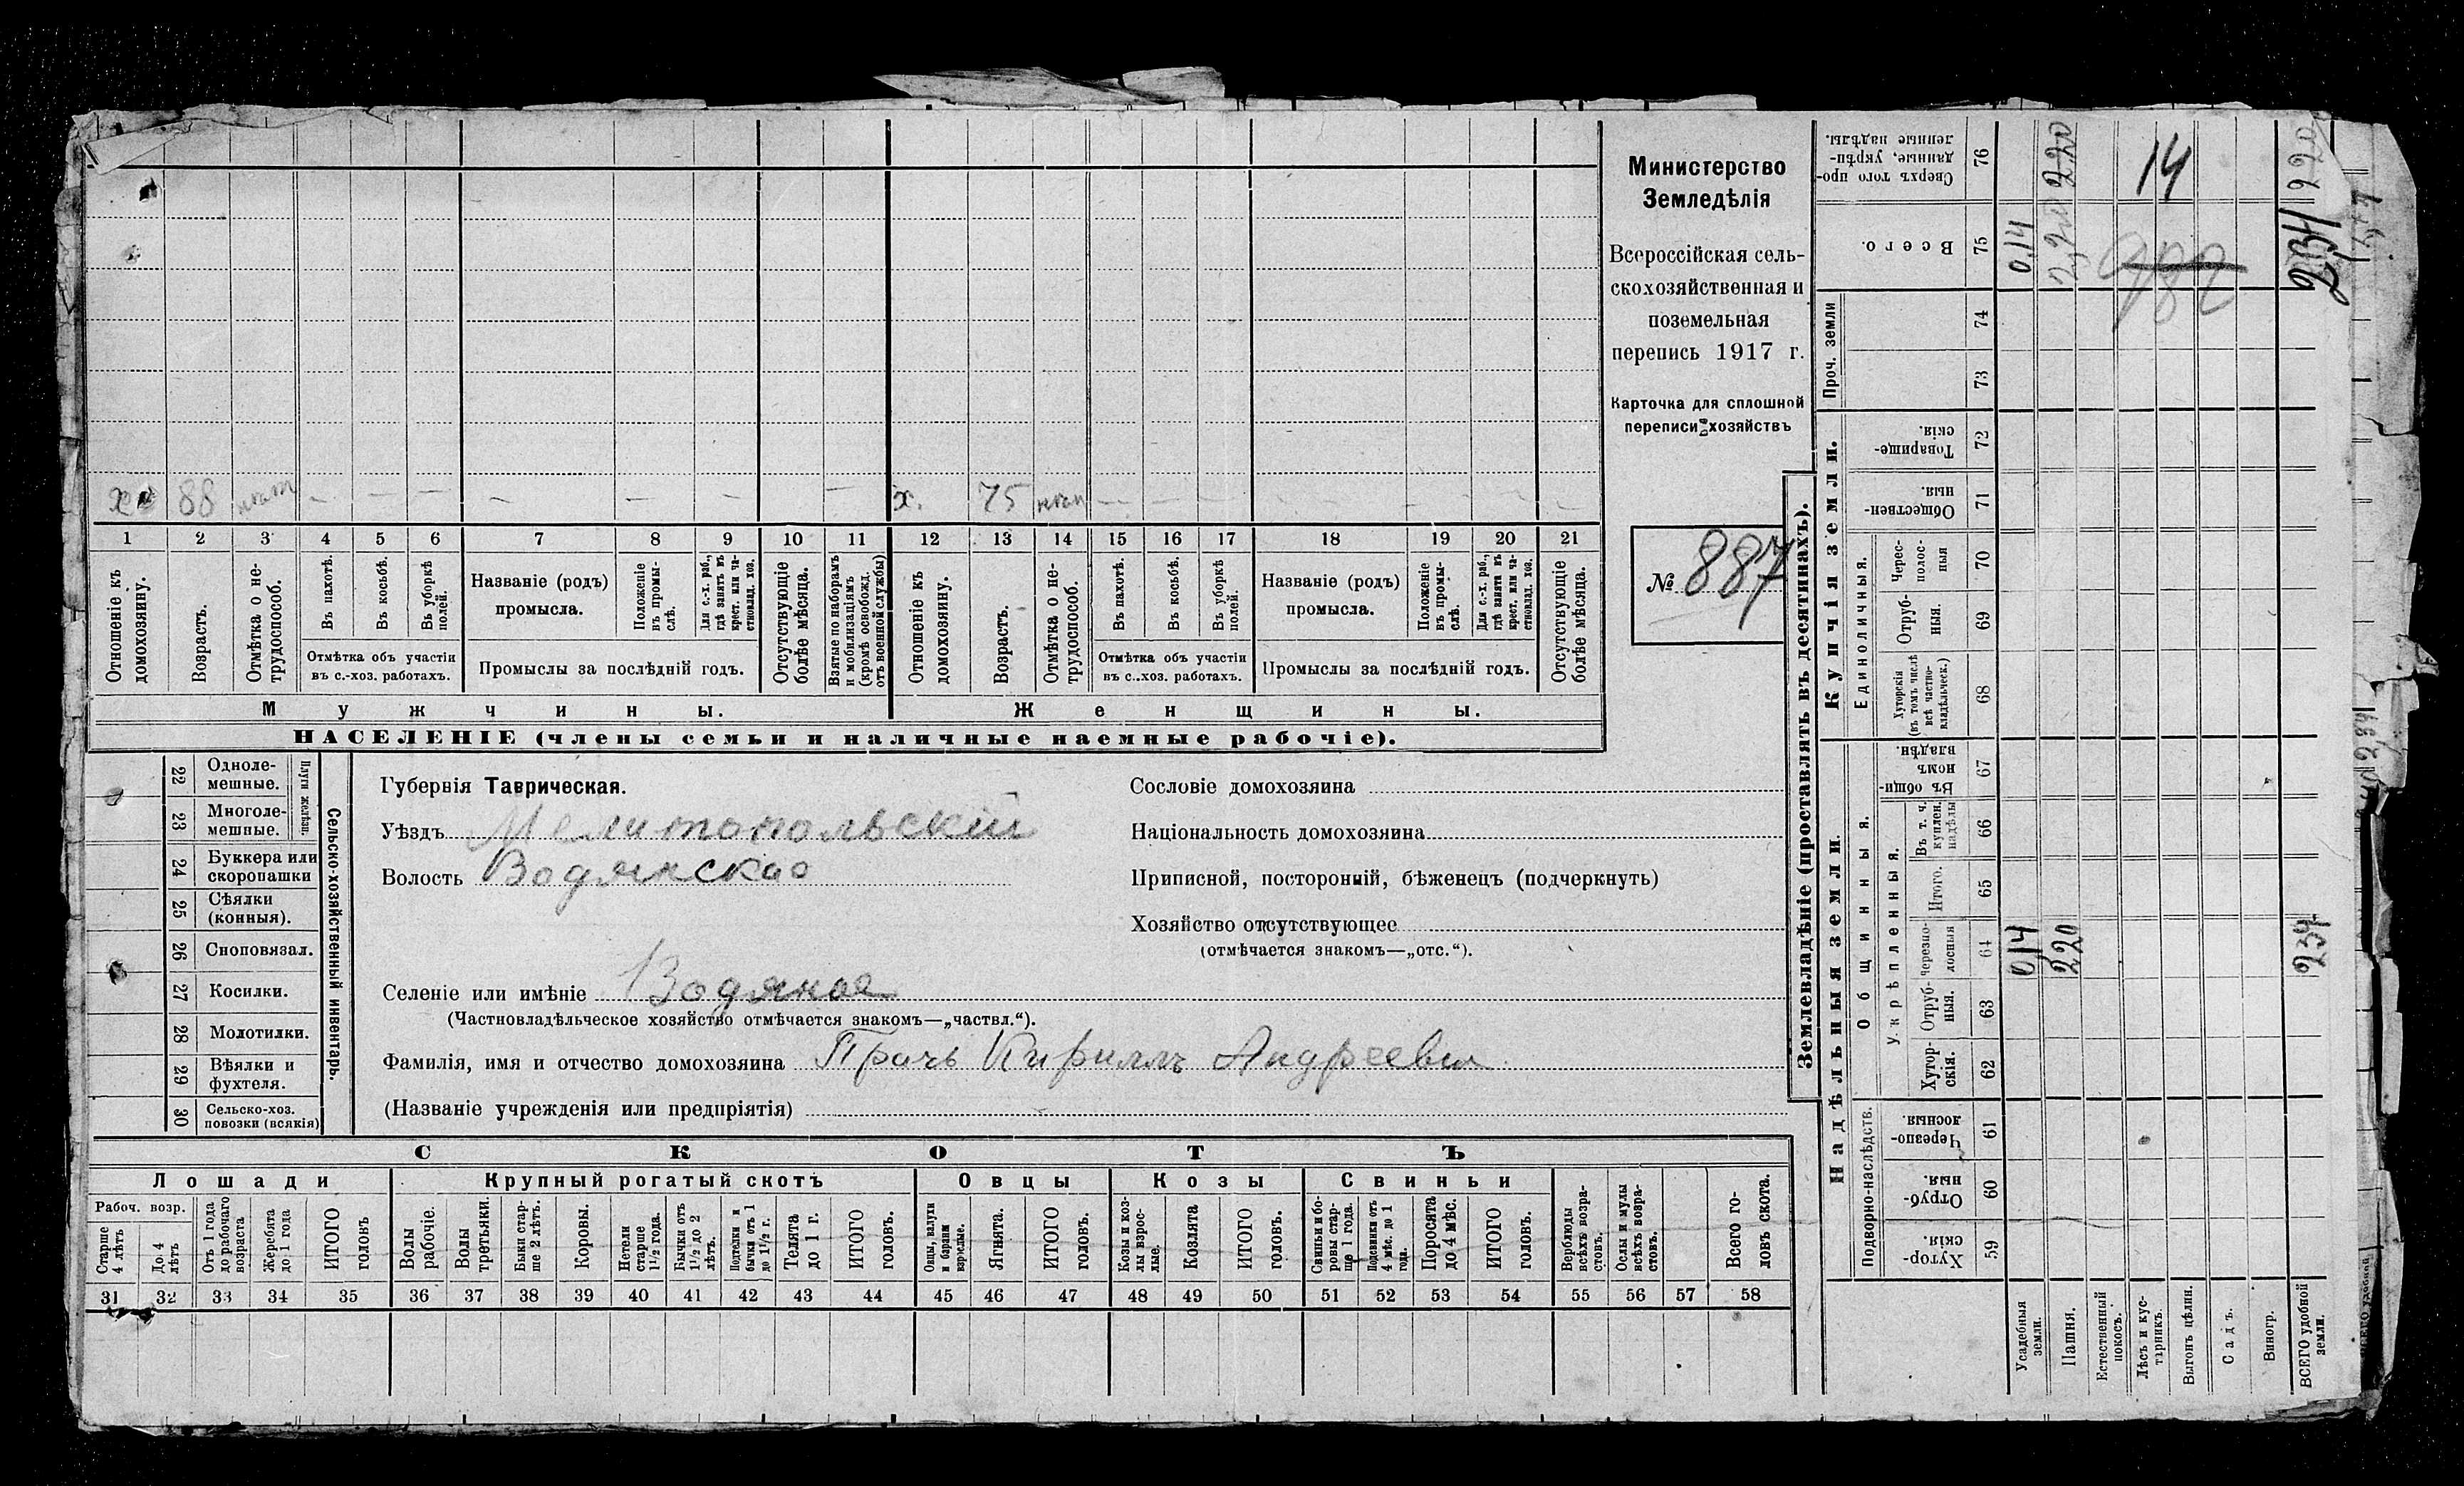 х 88 нѣт — — — — — — —
х. 75 нѣт — — — — — — —
1 2 3 4 5 6 7 8 9 10 11 12 13 14 15 16 17 18 19 20 21
Отношеніе къ домохозяину.
Возрастъ.
Отмѣтка о не-
трудоспособ.
Въ пахотѣ.
Въ косьбѣ.
Въ уборкѣ полей.
Отмѣтка объ участіи
въ с.-хоз. работахъ.
Названіе (родъ)
промысла.
Положеніе
въ промы-
слѣ.
Для с.-х. раб.,
гдѣ занятъ въ
крест. или ча-
стновлад. хоз.
Промыслы за послѣдній годъ.
Отсутствующіе
болѣе мѣсяца.
Взятые по наборамъ
и мобилизаціямъ
(кромѣ освобожд.
отъ военной службы)
Отношеніе къ
домохозяину.
Возрастъ.
Отмѣтка о не-
трудоспособ.
Въ пахотѣ.
Въ косьбѣ.
Въ уборкѣ
полей.
Отмѣтка объ участіи
въ с..хоз. работахъ.
Названіе (родъ)
промысла.
Положеніе
въ промы-
слѣ.
Для с.-х. раб.,
гдѣ занята въ
крест. или ча-
стновлад. хоз.
Промыслы за послѣдній годъ.
Отсутствующіе
болѣе мѣсяца.
Мужчины.
Женщины.
НАСЕЛЕНІЕ (члены семьи и наличные наемные рабочіе).
Министерство
Земледѣлія
Всероссійская сель-
скохозяйственная и
поземельная
перепись 1917 г.
Карточка для сплошной
переписи хозяйствъ
№ 887
22 Одноле-
мешные.
23 Многоле-
мешные.
Плуги желѣзн.
24 Буккера или
скоропашки
25 Сѣялки
(конныя).
26 Сноповязал.
27 Косилки.
28 Молотилки.
29 Вѣялки и
фухтеля.
30 Сельско-хоз.
повозки (всякія)
Сельско-хозяйственный инвентарь.
Губернія Таврическая.
Уѣздъ Мелитопольскій
Волость Водянская
Селеніе или имѣніе Водяное
(Частновладѣльческое хозяйство отмѣчается знакомъ—„частвл.“).
Фамилія, имя и отчество домохозяина Прачъ Кириллъ Андреевич
(Названіе учрежденія или предпріятія)
Сословіе домохозяина
Національность домохозяина
Приписной, посторонній, бѣженецъ (подчеркнуть)
Хозяйство отсутствующее
(отмѣчается знакомъ—„отс.“).
СКОТЪ
Лошади
Крупный рогатый скотъ
Овцы
Козы
Свиньи
Рабоч. возр.
Старше
4 лѣтъ
До 4
лѣтъ
Отъ 1 года
до рабочаго
возраста
Жеребята
до 1 года
ИТОГО
головъ
Волы
рабочіе.
Волы
третьяки.
Быки стар-
ше 2 лѣтъ.
Коровы.
Нетели
старше
1½ года.
Бычки отъ
1½ до 2
лѣтъ.
Подтелки и
бычки отъ 1
до 1½ г.
Телята
до 1 г.
ИТОГО
головъ.
Овцы, валухи
и бараны
взрослые.
Ягнята.
ИТОГО
головъ.
Козы и коз-
лы взрос-
лые.
Козлята
ИТОГО
головъ.
Свиньи и бо-
ровы стар-
ше 1 года.
Подсвинки отъ
4 мѣс. до 1
года.
Поросята
до 4 мѣс.
ИТОГО
головъ.
Верблюды
всѣхъ возра-
стовъ.
Ослы и мулы
всѣхъ возра-
стовъ.
Всего го-
ловъ скота.
31 32 33 34 35 36 37 38 39 40 41 42 43 44 45 46 47 48 49 50 51 52 53 54 55 56 57 58
Землевладѣніе (проставлять въ десятинахъ).
Надѣльныя земли.
Купчія земли.
Проч. земли
Подворно-наслѣдств.
Общинныя.
Укрѣпленныя.
Единоличныя.
Хутор-
скія.
59
Отруб-
ныя.
60
Черезпо-
лосныя
61
Хутор-
скія.
62
Отруб-
ныя.
63
Черезпо-
лосныя
64
Итого.
65
Въ т. ч.
куплен.
надѣлы
66
Въ общи-
номъ
владѣн.
67
Хуторскія
(въ томъ числѣ
всѣ частно-
владѣльческ.)
68
Отруб-
ныя.
69
Черес-
полос-
ныя
70
Обществен-
ныя
71
Товарище-
скія.
72
73
74
Всего.
75
Сверхъ того про-
данные, укрѣп-
ленные надѣлы.
76
Усадебныя
земли.
0,14 0,14
Пашня.
220 2,20 220
Естественный
покосъ.
Лѣсъ и кус-
тарникъ.
14
Выгонъ цѣлин.
Садъ.
Виногр.
ВСЕГО удобной
земли.
234 234 220